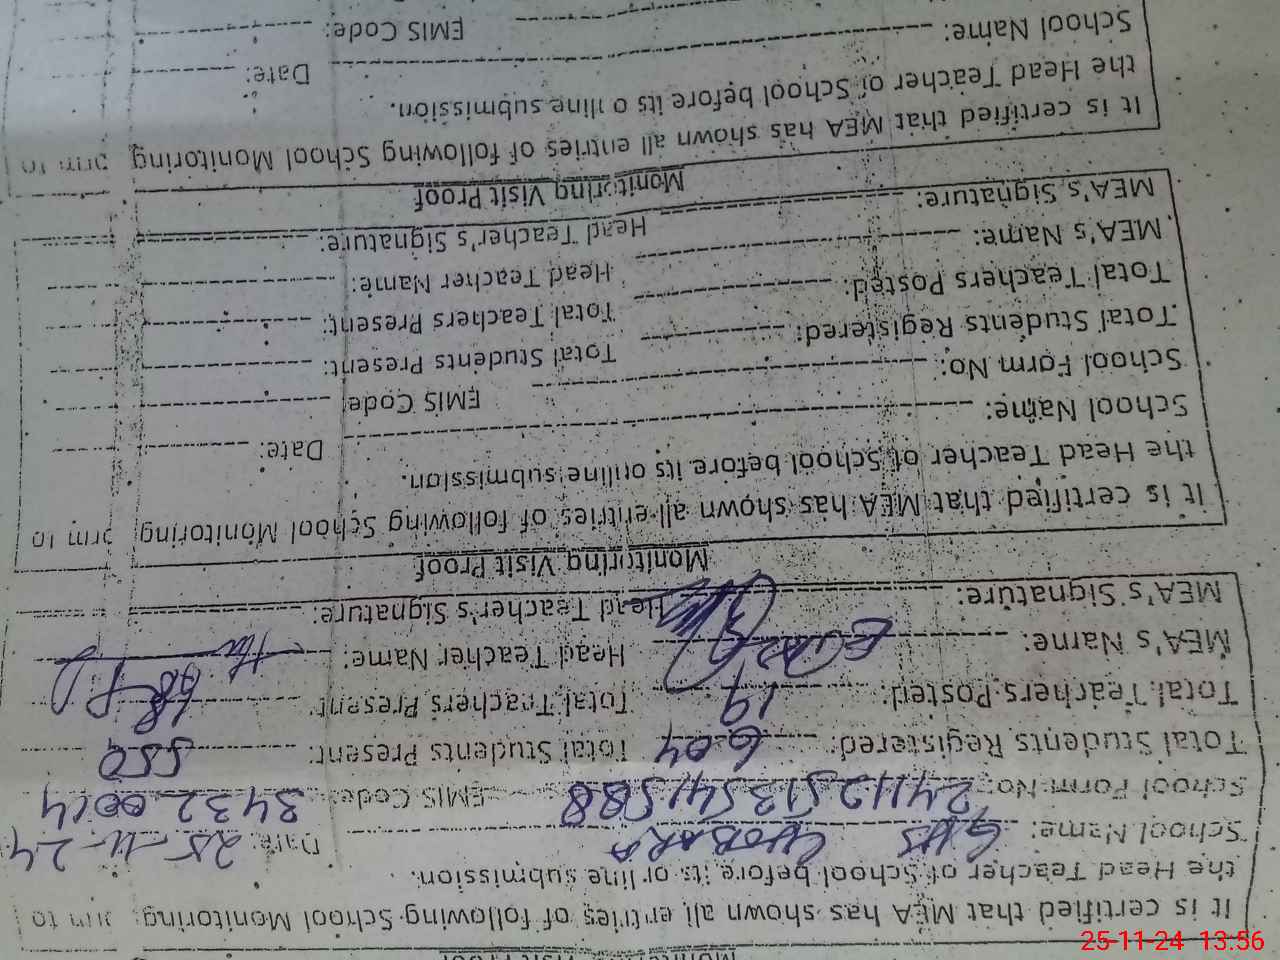 Monitoring Visit Proof
It is certified that MEA has shown all entries of following School Monitoring to
the Head Teacher of School before its online submission.
School Name: GHS CHOBARA Date: 25-11-24
School Form No: 2411251354541588 EMIS Code: 34320014
Total Students Registered: 604 Total Students Present: 550
Total Teachers Posted: 19 Total Teachers Present: 18
MEA's Name: Head Teacher Name:
MEA's Signature: Head Teacher's Signature:
Monitoring Visit Proof
It is certified that MEA has shown all entries of following School Monitoring to
the Head Teacher of School before its online submission.
School Name: Date:
School Form No: EMIS Code:
Total Students Registered: Total Students Present:
Total Teachers Posted: Total Teachers Present:
MEA's Name: Head Teacher Name:
MEA's Signature: Head Teacher's Signature:
Monitoring Visit Proof
It is certified that MEA has shown all entries of following School Monitoring to
the Head Teacher of School before its online submission.
School Name: Date:
EMIS Code:
25-11-24 13:56